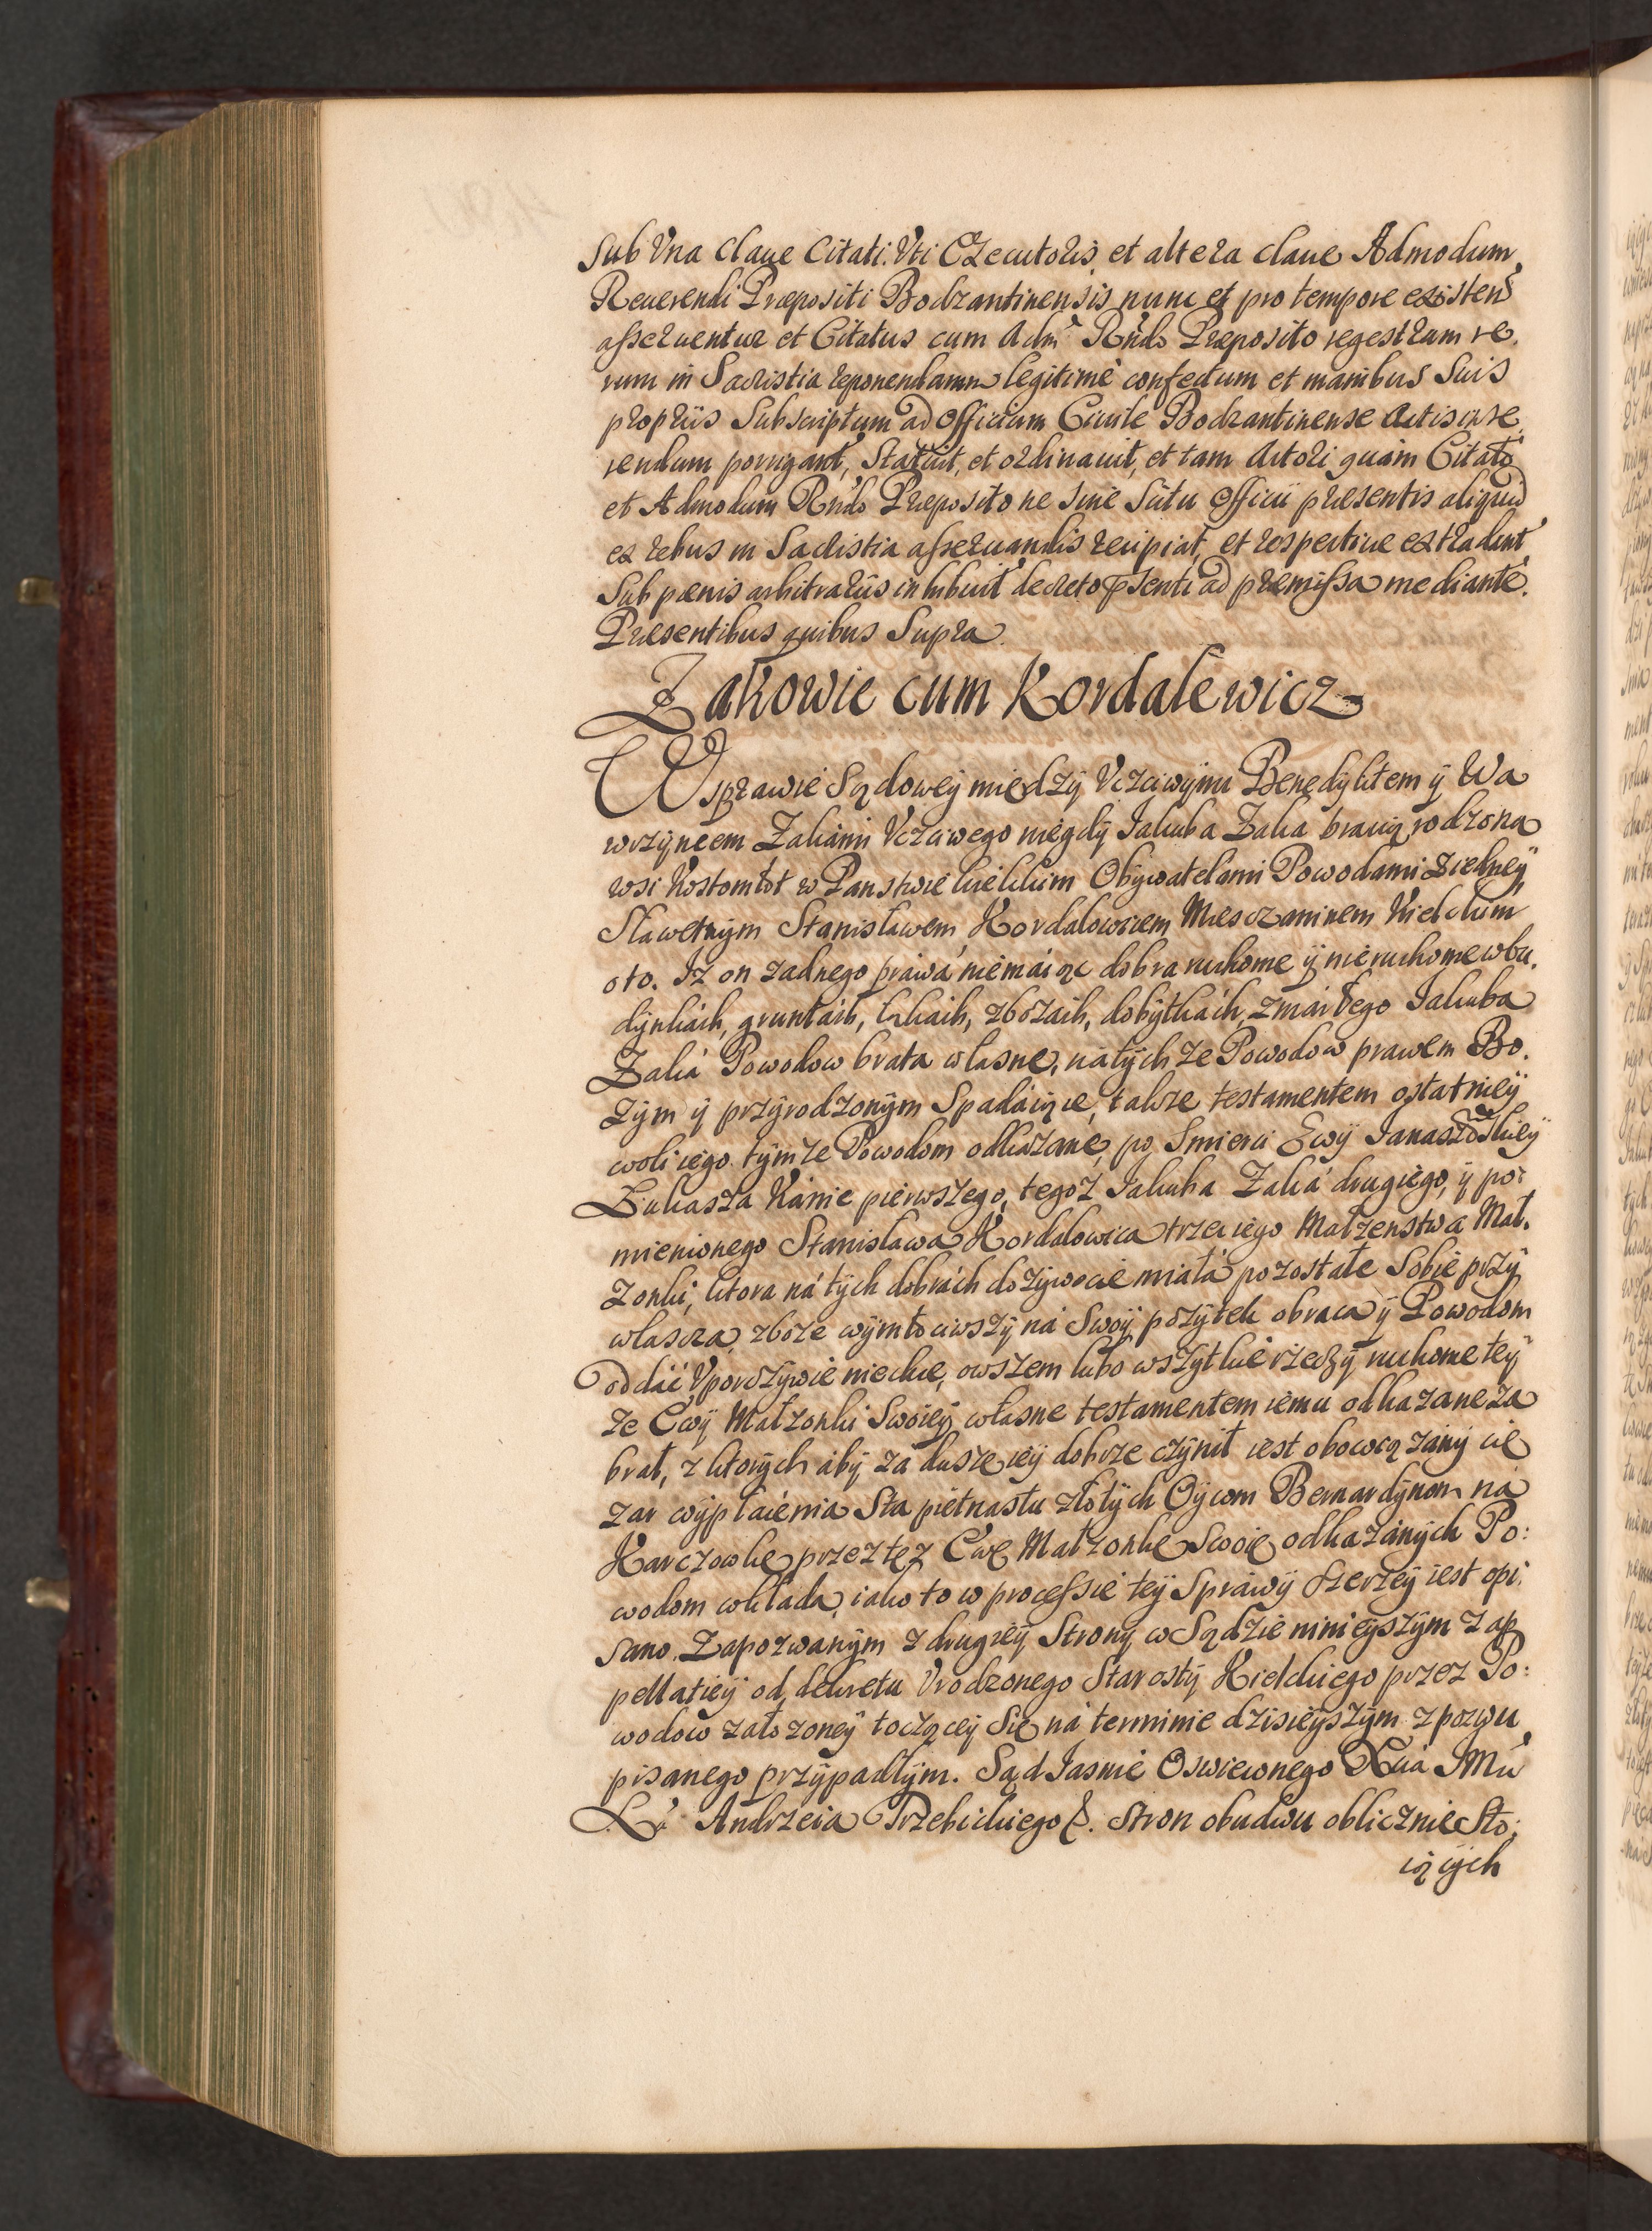 Sub Vna claue Citati. Vti Executoris, et altera claue Admodum
Reuerendi Præpositi Bodzantinensis nunc et pro tempore existens
asseruentur et Citatus cum Adm Rndo Præposito regestrum re.
rum in Sacristia reponendarum legitimè confectum et manibus Suis
proprijs Subscriptum ad Officium Ciuile Bodzantinense Actis inse.
rendum porrigant, Statuit, et ordinauit, et tam Actori quàm Citato
et Admodum Rndo Præposito ne sine Scitu Officij præsentis aliquid
ex rebus in Sacristia asseruandis recipiat, et respectiue extradant
Sub pœnis arbitrarijs inhibuit decreto psenti ad præmissa mediante.
Præsentibus quibus Supra
Zakowie cum Kordalewicz
W sprawie Sądowey między Vczciwymi Benedyktem y Wa
wrzyncem Zakami Vczciwego niegdy Jakuba Zaka bracią rodzoną
wsi Kostomłot w Panstwie kieleckim Obywatelami Powodami z iedney
Sławetnym Stanisławem Kordalowicem Miesczaninem Kieleckim
oto. Iz on zadnego práwá niemáiąc dobra ruchome y nieruchome w bu.
dynkách, gruntách, łąkách, zbożách, dobytkách, zmárłego Jakuba
Zaká Powodow brata własne, ná tych że Powodow prawem Bo.
żym y przyrodzonym Spadáiące, także testamentem ostatniey
woli iego tymże Powodom odkazáne, po Smierci Ewy Janaszowskiey
Łukasza Kánie pierwszego, tegoż Jakuba Zaká drugiego, y po:
mienionego Stanisława Kordalowica trzeciego Małżenstwa Mał.
żonki, ktora ná tych dobrách dożywocie miáłá pozostałe Sobie przy
włascza, zboże wymłociwszy ná Swoy pożytek obraca y Powodom
oddáć Vporczywie niechce, owszem lubo wszytkie rzeczy ruchome tey
że Ewy Małżonki Swoiey własne testamentem iemu odkazane za
brał, z ktorych áby za duszę iey dobrze czynił iest obowiązány cię
żar wypłácenia Sta pietnastu złotych Oycom Bernardynom ná
Karczowke przez tęż Ewę Małżonkę Swoię odkazánych Po:
wodom wkłada, iako to w processie tey Spráwy szerzey iest opi:
sano. Zapozwanym z drugiey Strony w Sądzie ninieyszym z ap
pellatiey od dekretu Vrodzonego Starosty Kieleckiego przez Po:
wodow załozoney toczącey Się ná terminie dzisieyszym z pozwu
pisanego przypadłym. Sąd Iasnie Oswieconego Xcia JMci
Xa Andrzeia Trzebickiego &. Stron obudwu oblicznie Sto:
iących